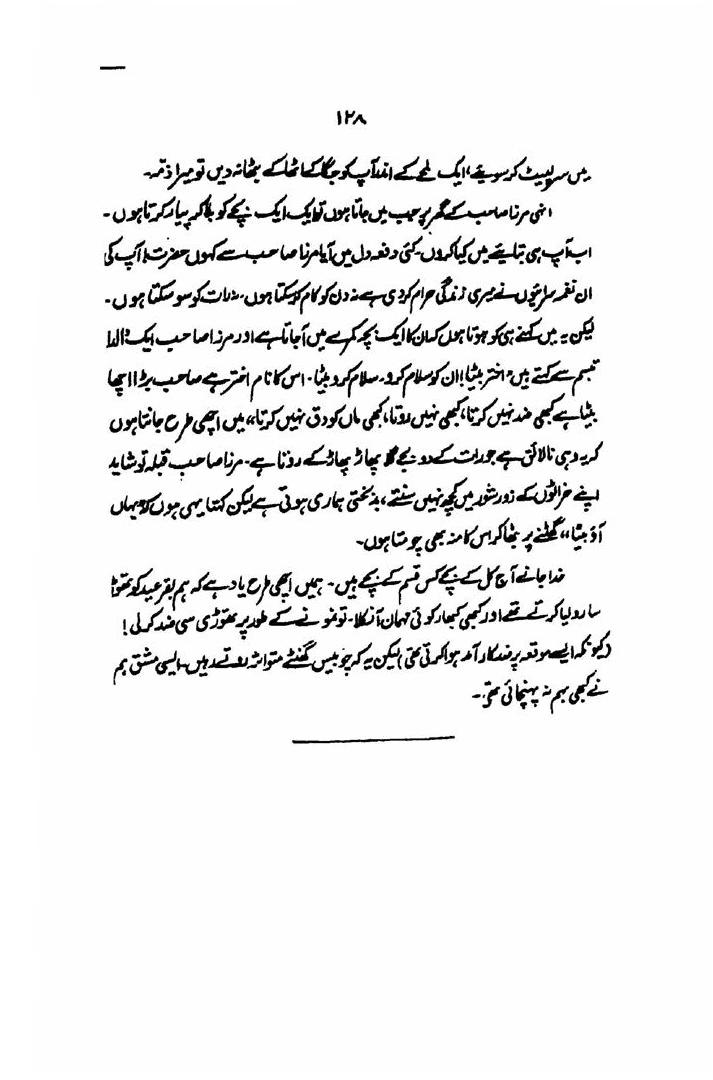 ۱۲۸
میں سر لپیٹ کر سویئے، ایک لمحے کے اندر آپ کو جگا کے اٹھا کے بٹھا نہ دیں تو میرا ذمّہ۔
انہی مرزا صاحب کے گھر پر جب میں جاتا ہوں تو ایک ایک بچّے کو بلا کر پیار کرتا ہوں۔
اب آپ ہی بتایئے میں کیا کروں۔ کئی دفعہ دل میں آیا مرزا صاحب سے کہوں حضرت! آپ کی
ان نغمہ سرائیوں نے میری زندگی حرام کر دی ہے نہ دن کو کام کر سکتا ہوں، نہ رات کو سو سکتا ہوں۔
لیکن یہ میں کہنے ہی کو ہوتا ہوں کہ ان کا ایک بچہ کمرے میں آ جاتا ہے اور مرزا صاحب ایک والدانہ
تبسم سے کہتے ہیں "اختر بیٹا! ان کو سلام کرو۔ سلام کرو بیٹا۔ اس کا نام اختر ہے صاحب بڑا اچھا
بیٹا ہے کبھی ضد نہیں کرتا، کبھی نہیں روتا، کبھی ماں کو دق نہیں کرتا" میں اچھی طرح جانتا ہوں
کہ یہ وہی نالائق ہے جو رات کے دو بجے گلا پھاڑ پھاڑ کے روتا ہے۔ مرزا صاحب قبلہ تو شاید
اپنے خراٹوں کے زور شور میں کچھ نہیں سنتے، بدبختی ہماری ہوتی ہے لیکن کہتا یہی ہوں کہ "یہاں
آؤ بیٹا" گھٹنے پر بٹھا کر اس کا منہ بھی چومتا ہوں۔
خدا جانے آج کل کے بچّے کس قسم کے بچّے ہیں۔ ہمیں اچھی طرح یاد ہے کہ ہم بقر عید کو تھوڑا
سا رو لیا کرتے تھے اور کبھی کبھار کوئی مہمان آ نکلا۔ تو نمونے کے طور پر تھوڑی سی ضد کر لی!
(کیونکہ ایسے موقعہ پر ضد کارآمد ہوا کرتی تھی) لیکن یہ کہ چوبیس گھنٹے متواتر روتے رہیں۔ ایسی مشق ہم
نے کبھی بہم نہ پہنچائی تھی۔